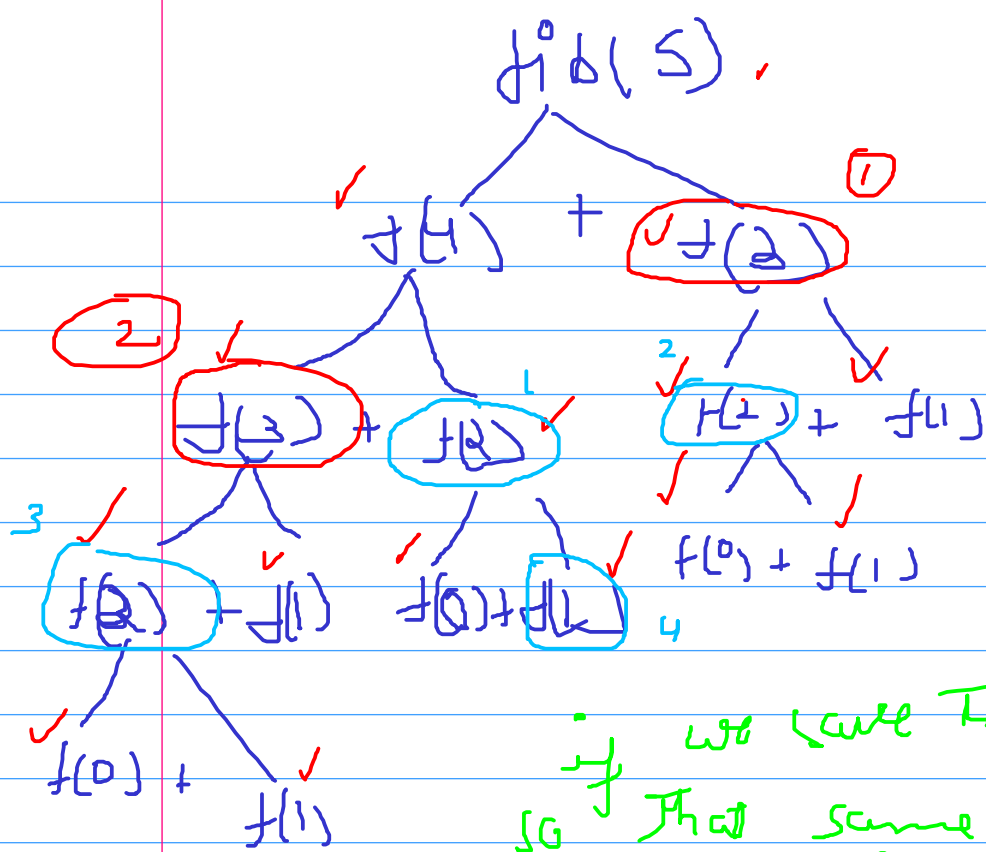 fib(5)
1
f(4) + f(2)
2
2
1
f(3) + f(2) f(2) + f(1)
3
f(2) + f(1) f(0) + f(1 f(0) + f(1)
4
f(0) + f(1)
if we save
so that same